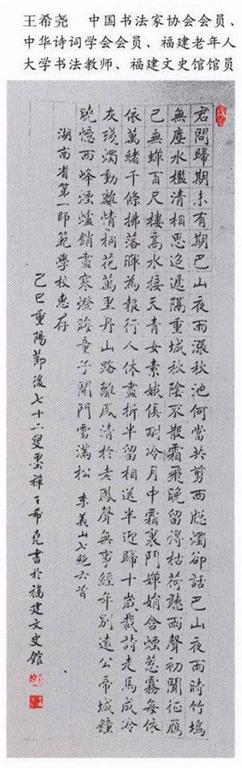 王希尧 中国书法家协会会员、
中华诗词学会会员、福建老年人
大学书法教师、福建文史馆馆员
君問歸期未有期巴山夜雨漲秋池何當共剪西牕燭卻話巴山夜雨時竹塢
無塵水檻清相思迢遞隔重城秋陰不散霜飛晚留得枯荷聽雨聲初聞征雁
已無蟬百尺樓高水接天青女素娥俱耐冷月中霜裏鬥嬋娟含煙惹霧每依
依萬緒千條拂落暉為報行人休盡折半留相送半迎歸十歲裁詩走馬成冷
灰殘燭動離情桐花萬里丹山路雛鳳清於老鳳聲無事經年別遠公帝城鐘
曉憶西峰煙爐銷盡寒燈晦童子開門雪滿松 李義山七絕六首
湖南省第一師範學校惠存
己巳重陽節後七十二叟禪王希堯書於福建文史館